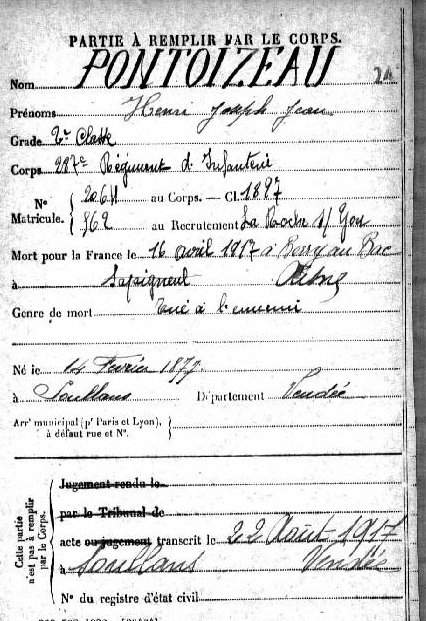 PARTIE À REMPLIR PAR LE CORPS.
Nom PONTOIZEAU
Prénoms Henri Joseph Jean
Grade 2e Classe
Corps 287e Régiment d'Infanterie
N° Matricule. { au Corps. — Cl. 1897
962 au Recrutement La Roche s/ Yon
Mort pour la France le 16 avril 1917 à Berry au Bac
à Sapigneul Aisne
Genre de mort tué à l'ennemi
Né le 14 Février 1877
à Soullans Département Vendée
Arrt municipal (pr Paris et Lyon),
à défaut rue et N°.
Cette partie n'est pas à remplir par le Corps.
Jugement rendu le
par le Tribunal de
acte ou jugement transcrit le 22 Août 1917
à Soullans Vendée
N° du registre d'état civil